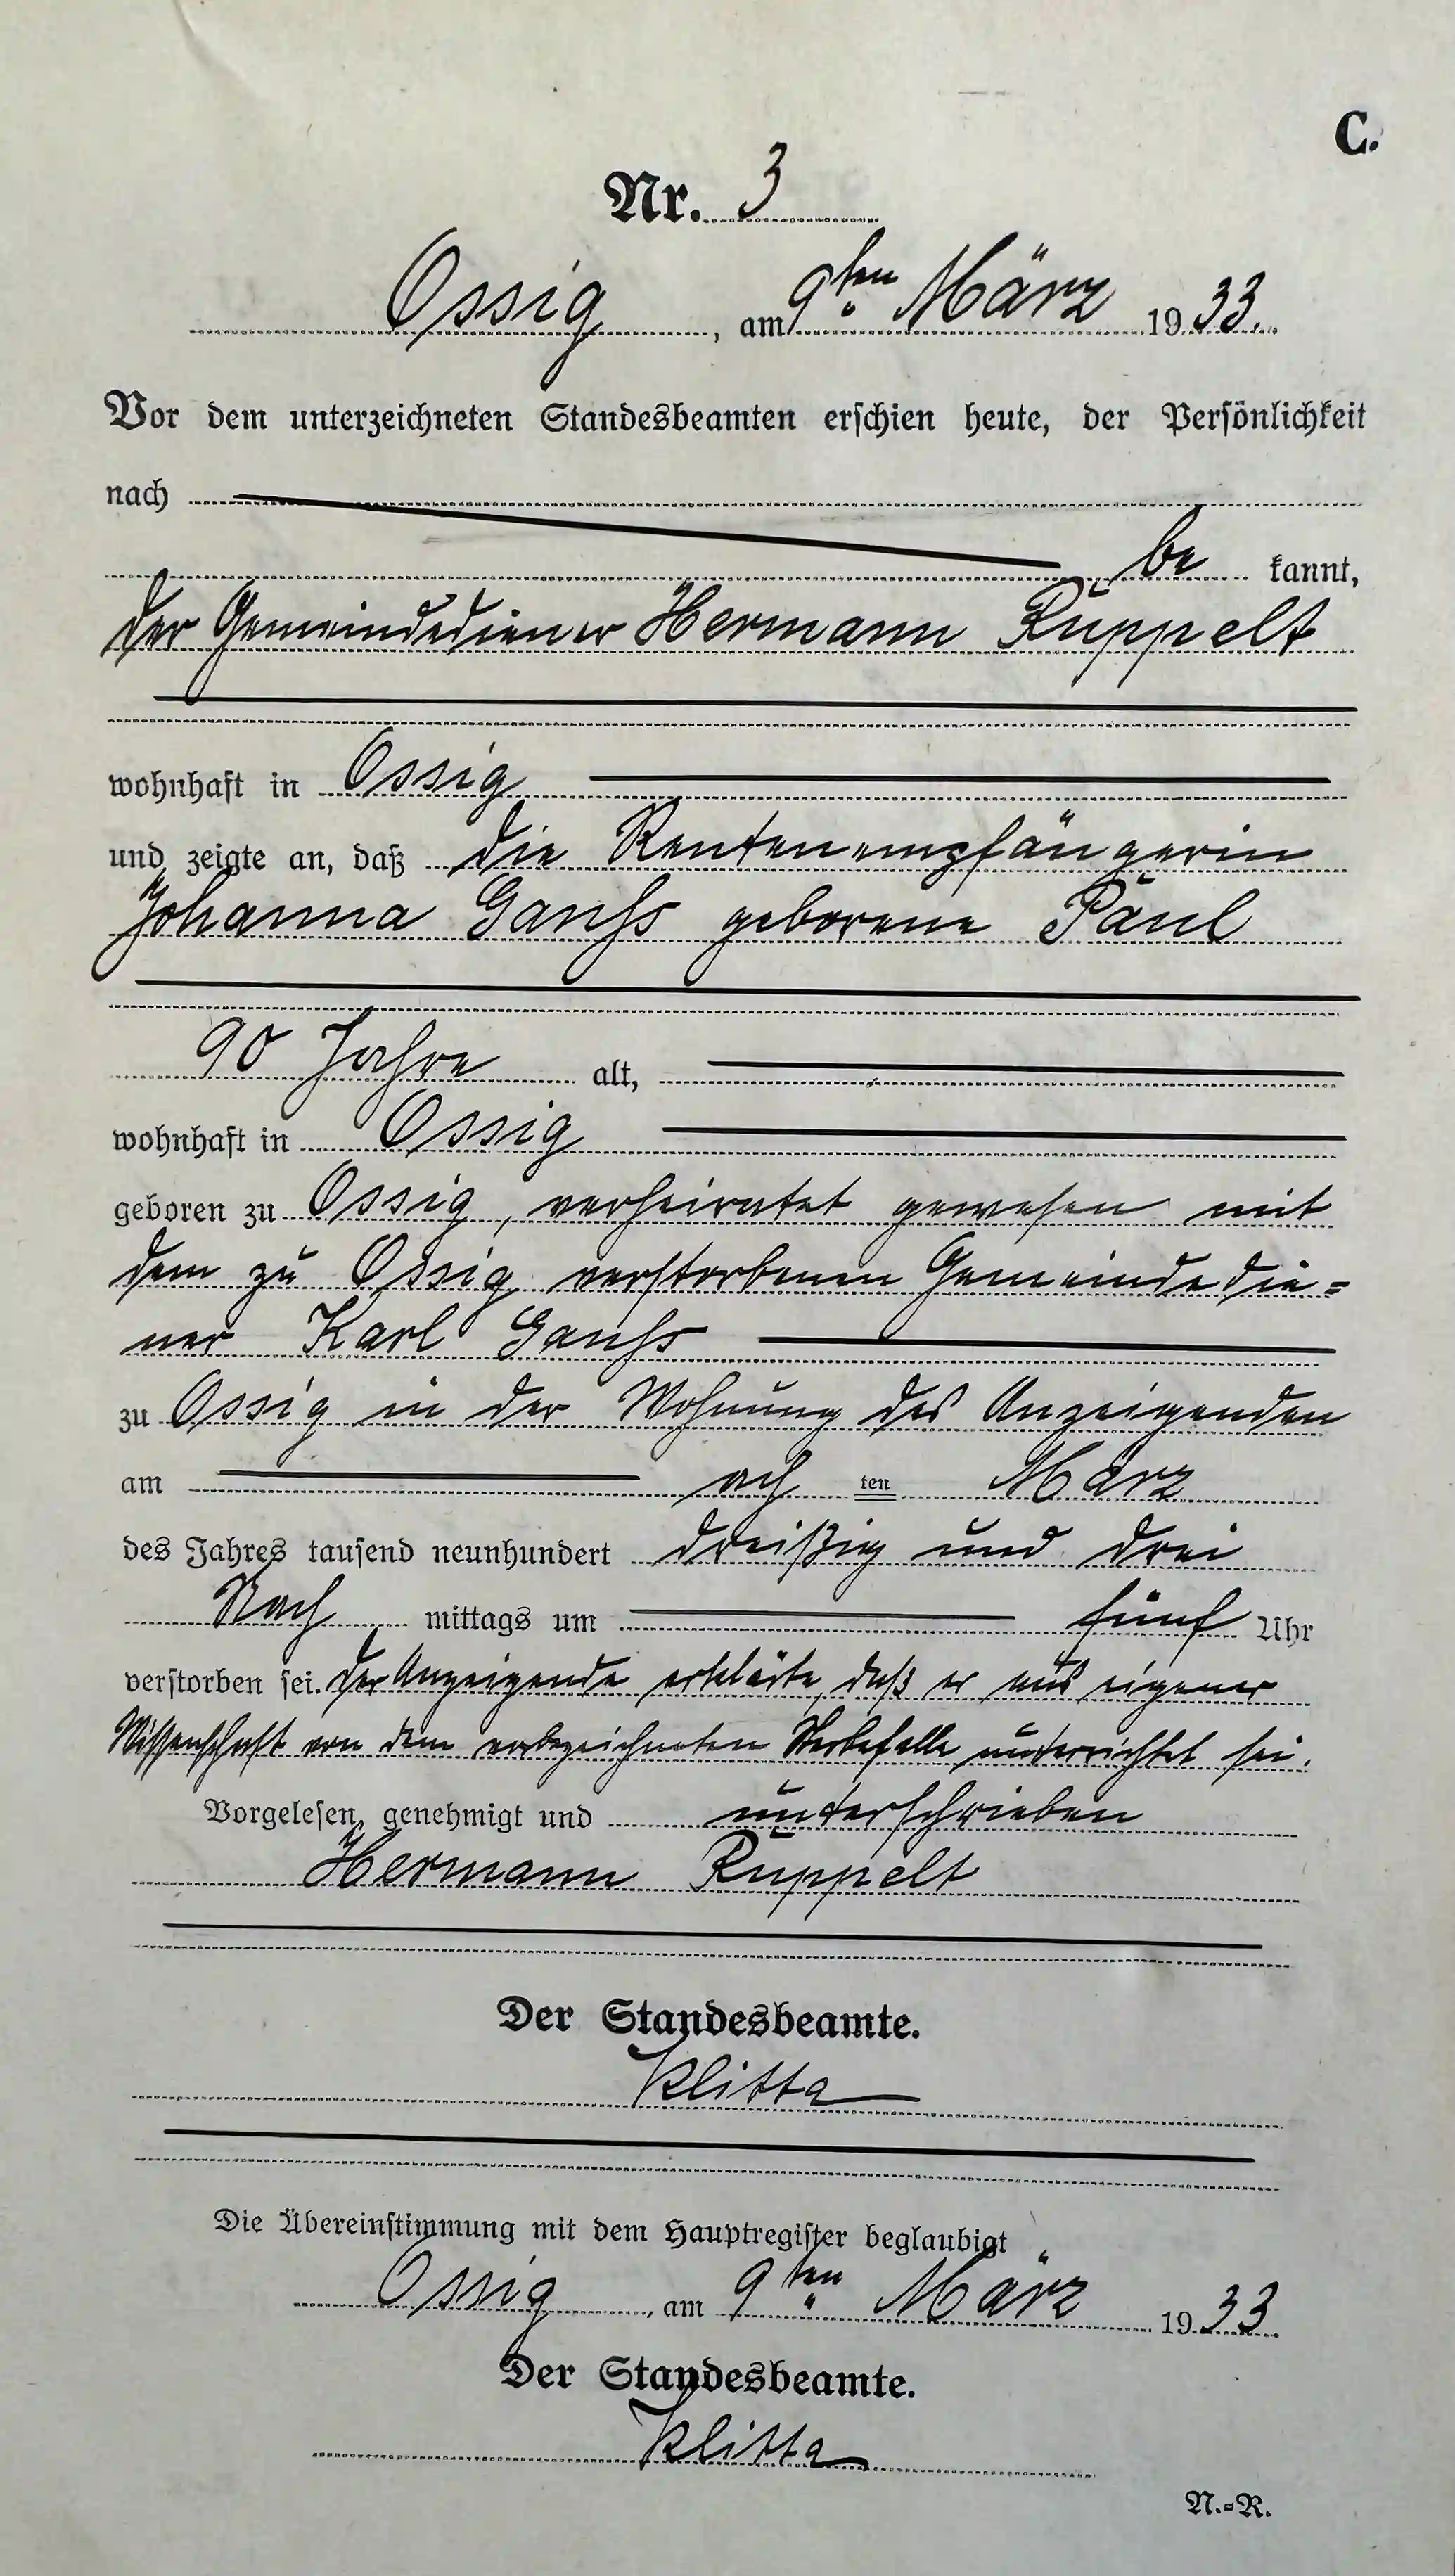 C.
Nr. 3
Ossig, am 9ten März 1933.
Vor dem unterzeichneten Standesbeamten erschien heute, der Persönlichkeit
nach
be kannt,
der Gemeindediener Hermann Ruppelt
wohnhaft in Ossig
und zeigte an, daß die Rentenempfängerin
Johanna Ganhs geborene Päul
90 Jahre alt,
wohnhaft in Ossig
geboren zu Ossig, verheiratet gewesen mit
dem zu Ossig verstorbenen Gemeindedie=
ner Karl Ganhs
zu Ossig in der Wohnung des Anzeigenden
am ach ten März
des Jahres tausend neunhundert dreißig und drei
Nach mittags um fünf Uhr
verstorben sei. Der Anzeigende erklärte, daß er aus eigener
Wissenschaft von dem vorbezeichneten Sterbefalle unterrichtet sei.
Vorgelesen, genehmigt und unterschrieben
Hermann Ruppelt
Der Standesbeamte.
Klitta
Die Übereinstimmung mit dem Hauptregister beglaubigt
Ossig, am 9ten März 1933.
Der Standesbeamte.
Klitta
N.=R.